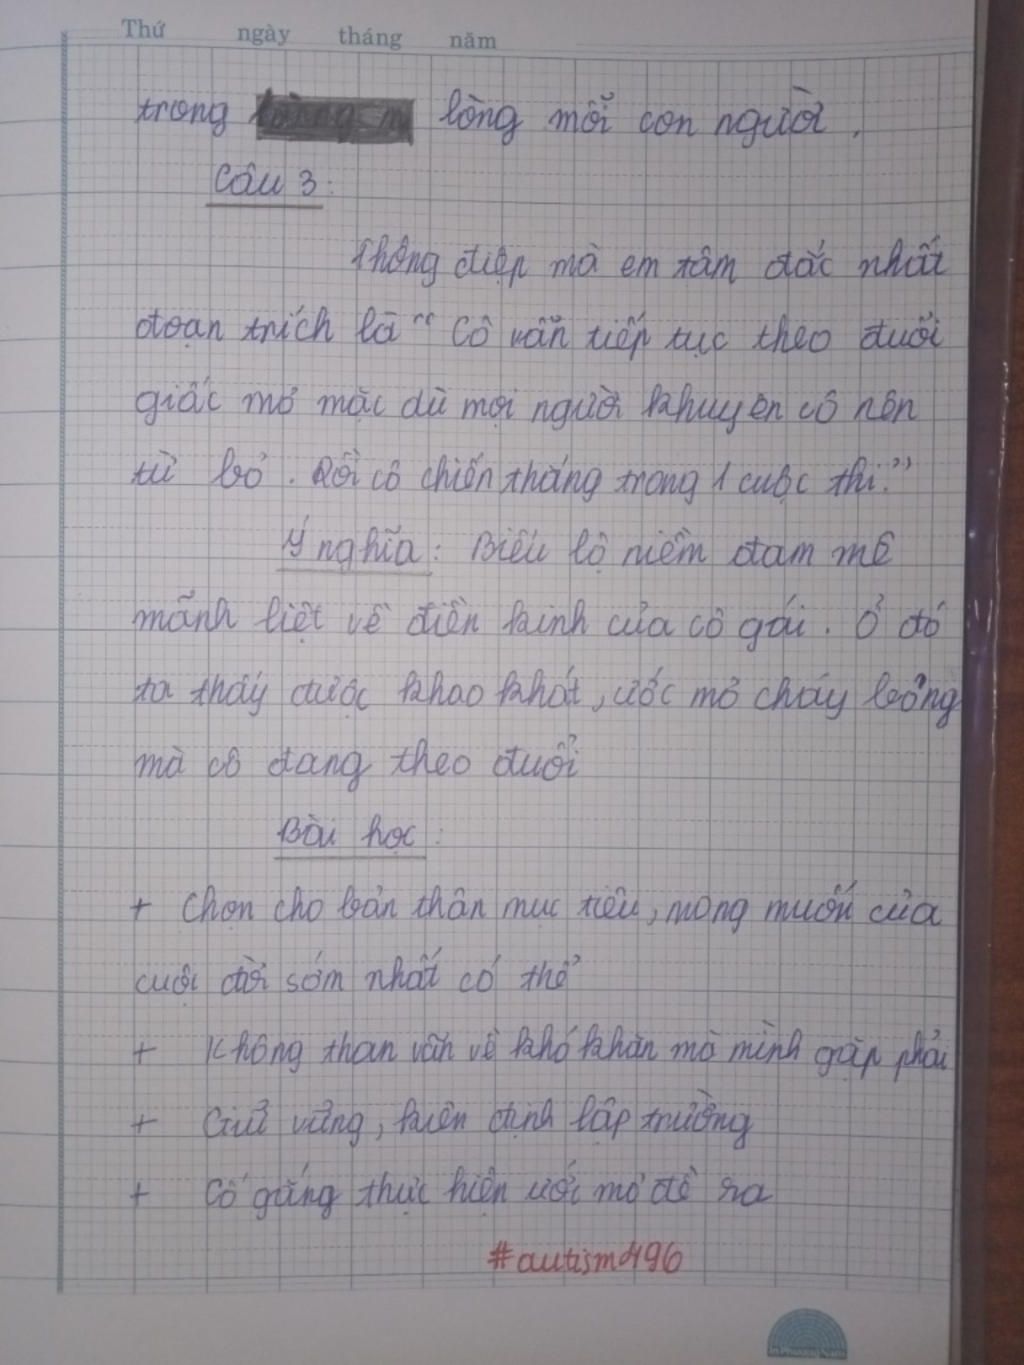 Thứ ngày tháng năm
trong lòng mỗi con người.
Câu 3:
Thông điệp mà em tâm đắc nhất
đoạn trích là "Cô vẫn tiếp tục theo đuổi
giấc mơ mặc dù mọi người khuyên cô nên
từ bỏ. Rồi cô chiến thắng trong 1 cuộc thi."
Ý nghĩa: Biểu lộ niềm đam mê
mãnh liệt về điền kinh của cô gái. Ở đó
ta thấy được khao khát, ước mơ cháy bỏng
mà cô đang theo đuổi
Bài học:
+ Chọn cho bản thân mục tiêu, mong muốn của
cuộc đời sớm nhất có thể
+ Không than vãn về khó khăn mà mình gặp phải
+ Giữ vững, kiên định lập trường
+ Cố gắng thực hiện ước mơ đề ra
#autism496
In Phương Nam